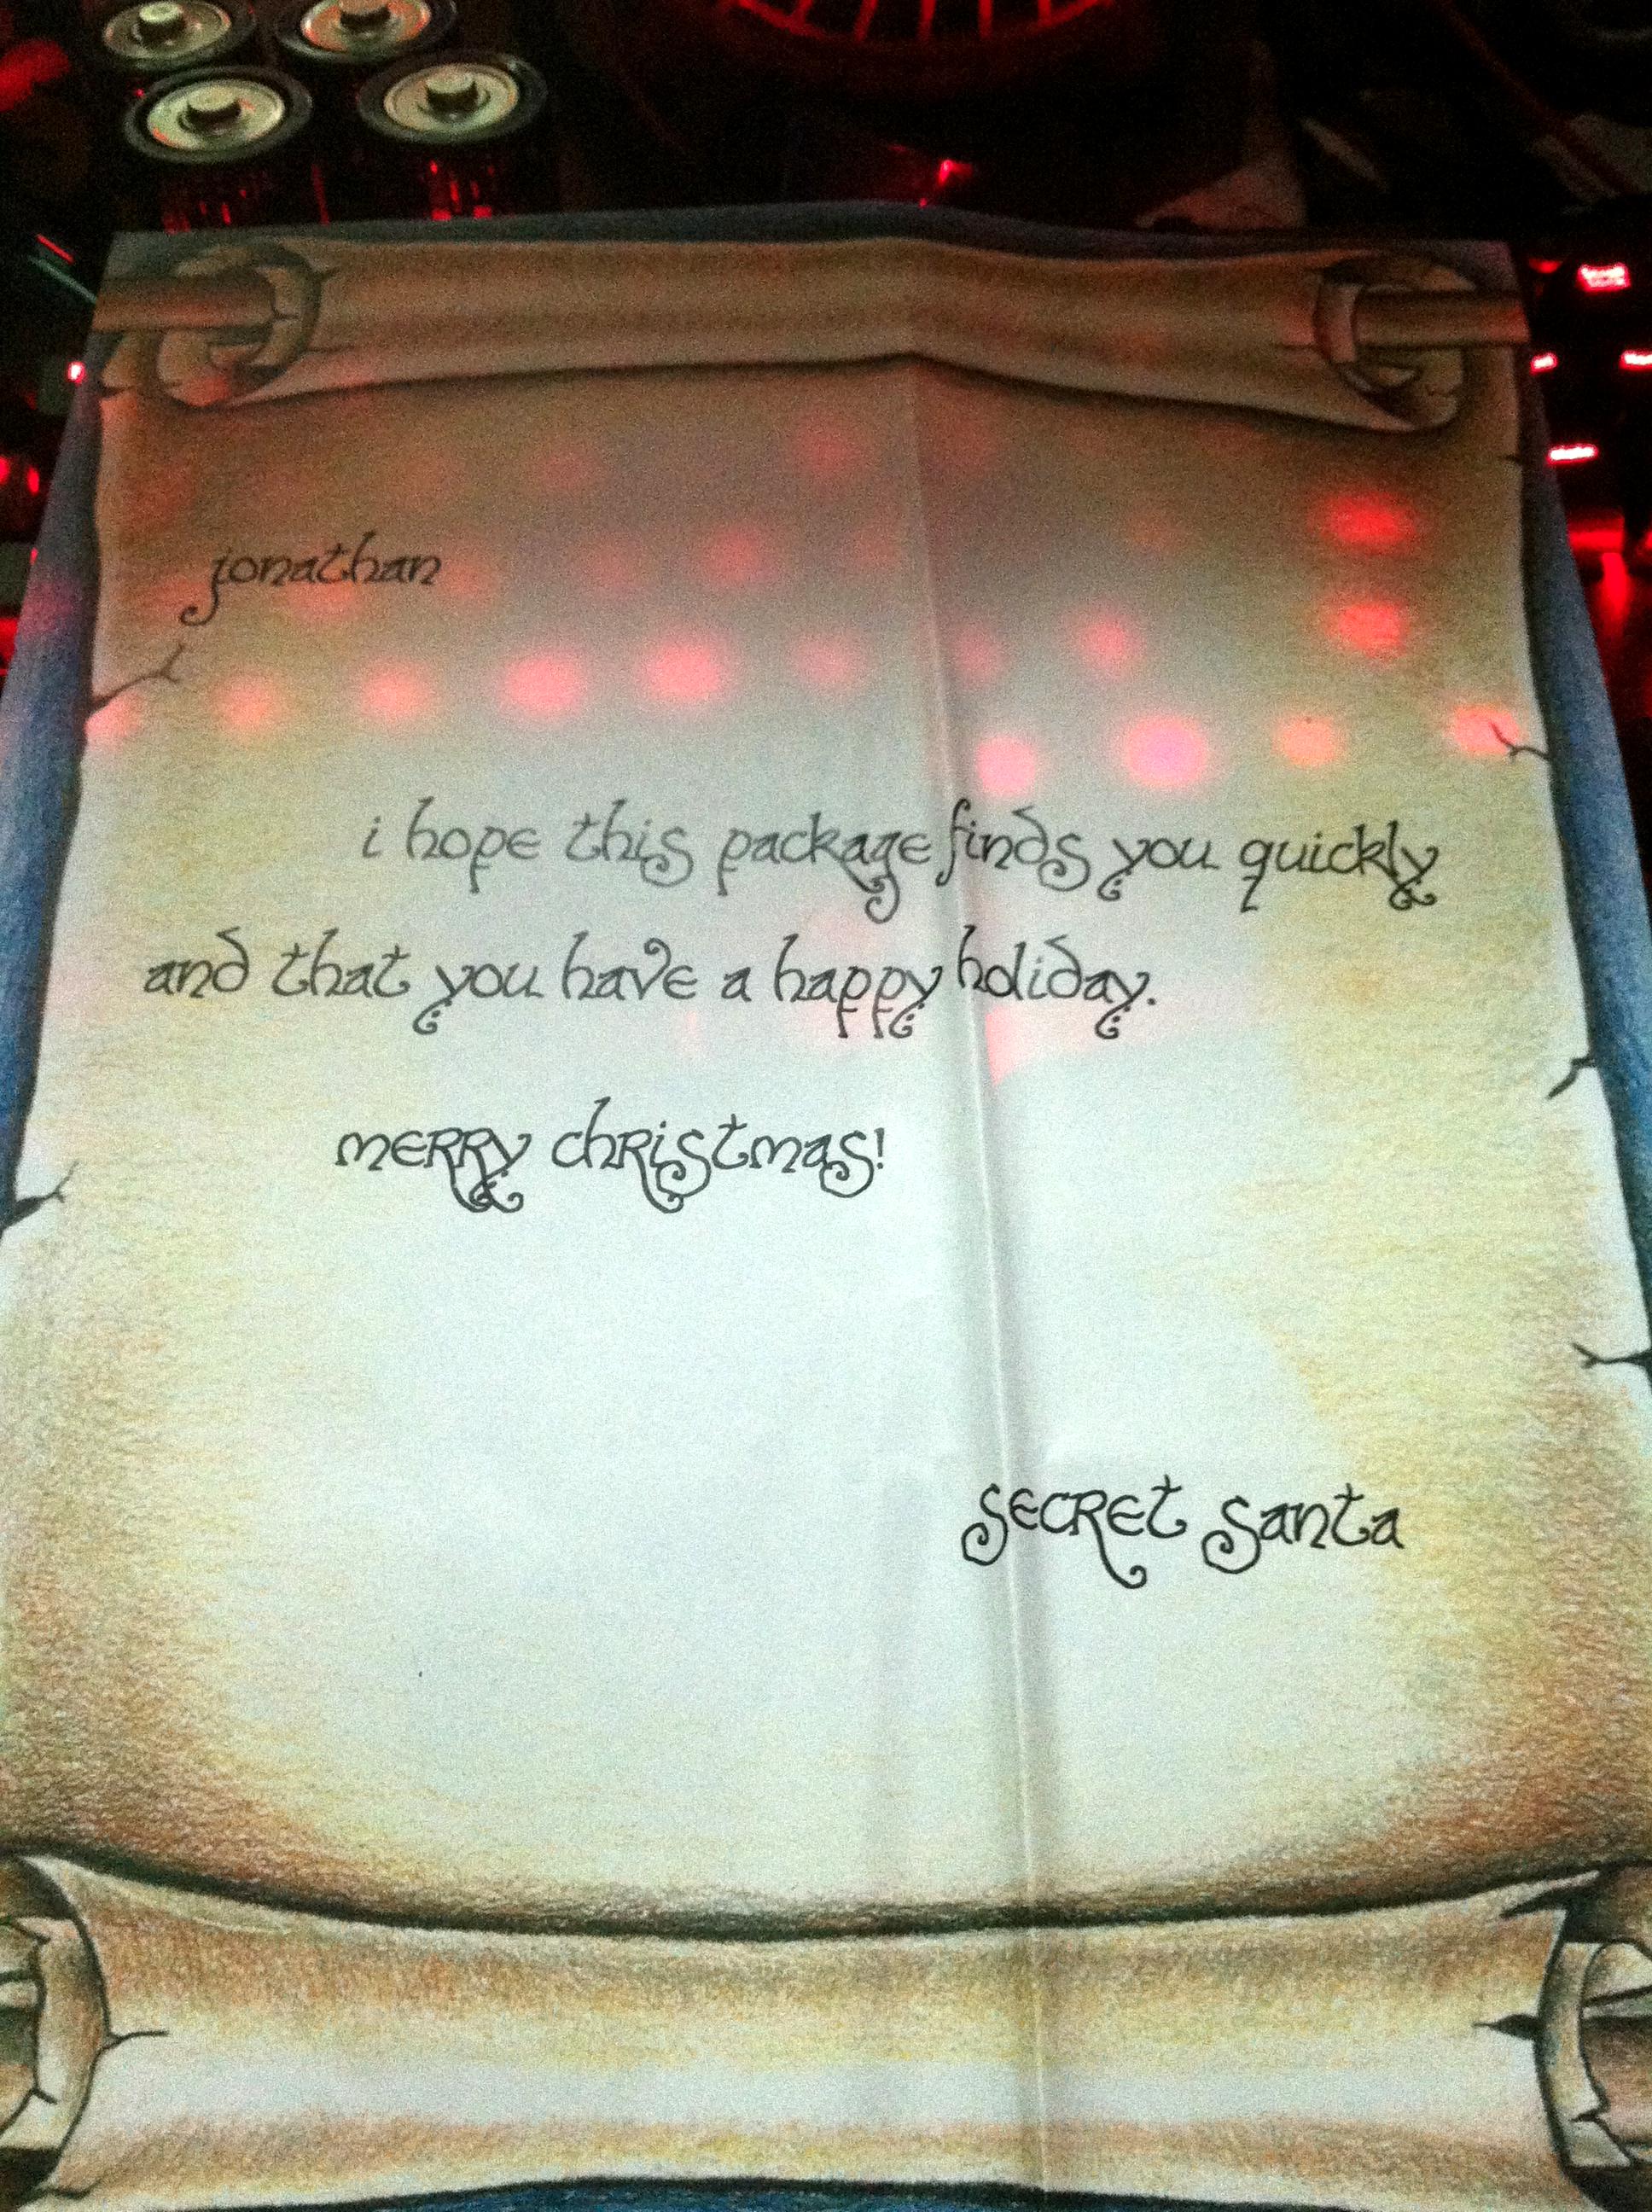 jonathan
i hope this package finds you quickly
and that you have a happy holiday.
merry christmas!
secret santa